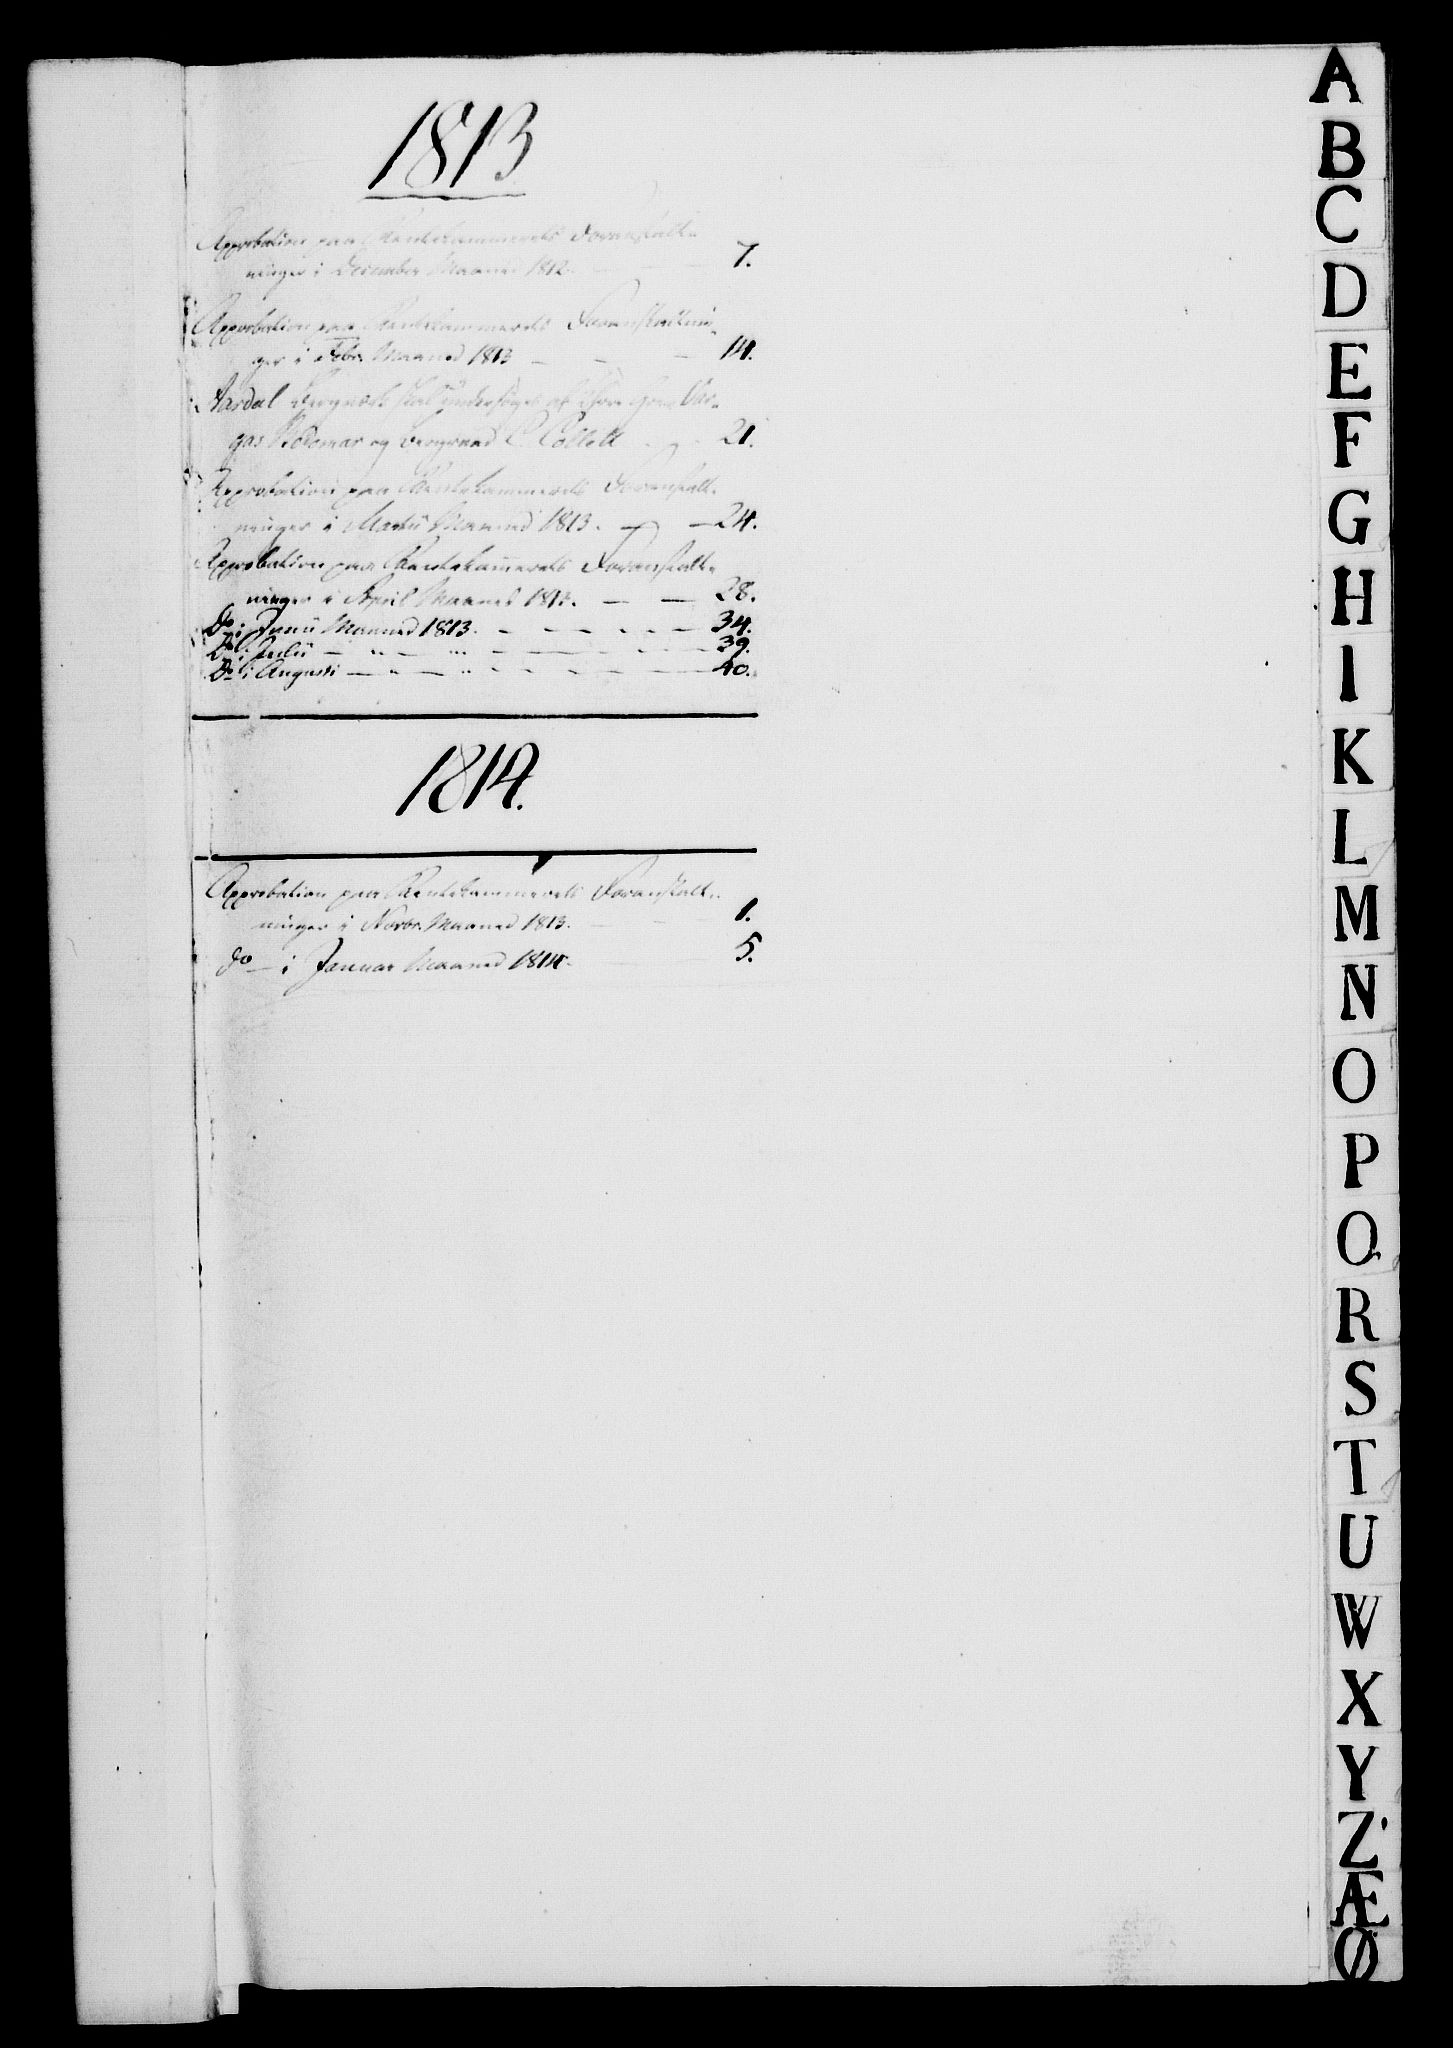 1813
Approbation paa Rentekammerets Foranstalt-
ninger i December Maaned 1812. 7.
Approbation paa Rentekammerets Foranstaltnin-
ger i Febr. Maaned 1813 — — — 14.
Aardal Bergværk skal undersøges af
gas Bedemar og Bergraad C. Collett 21.
Approbation paa Rentekammerets Foranstalt-
ninger i Martii Maaned 1813. — — 24.
Approbation paa Rentekammerets Foranstalt-
ninger i April Maaned 1813. — — 28.
Do i Junii Maaned 1813. - - - - - 34.
Do i Julii — " — " - — - - 39.
Do i Augusti — " — " - - - - - 40.
1814.
Approbation paa Rentekammerets Foranstalt-
ninger i Novbr. Maaned 1813. 1.
do — i Januar Maaned 1814. 5.
A
B
C
D
E
F
G
H
I
K
L
M
N
O
P
Q
R
S
T
U
W
X
Y
Z
Æ
Ø